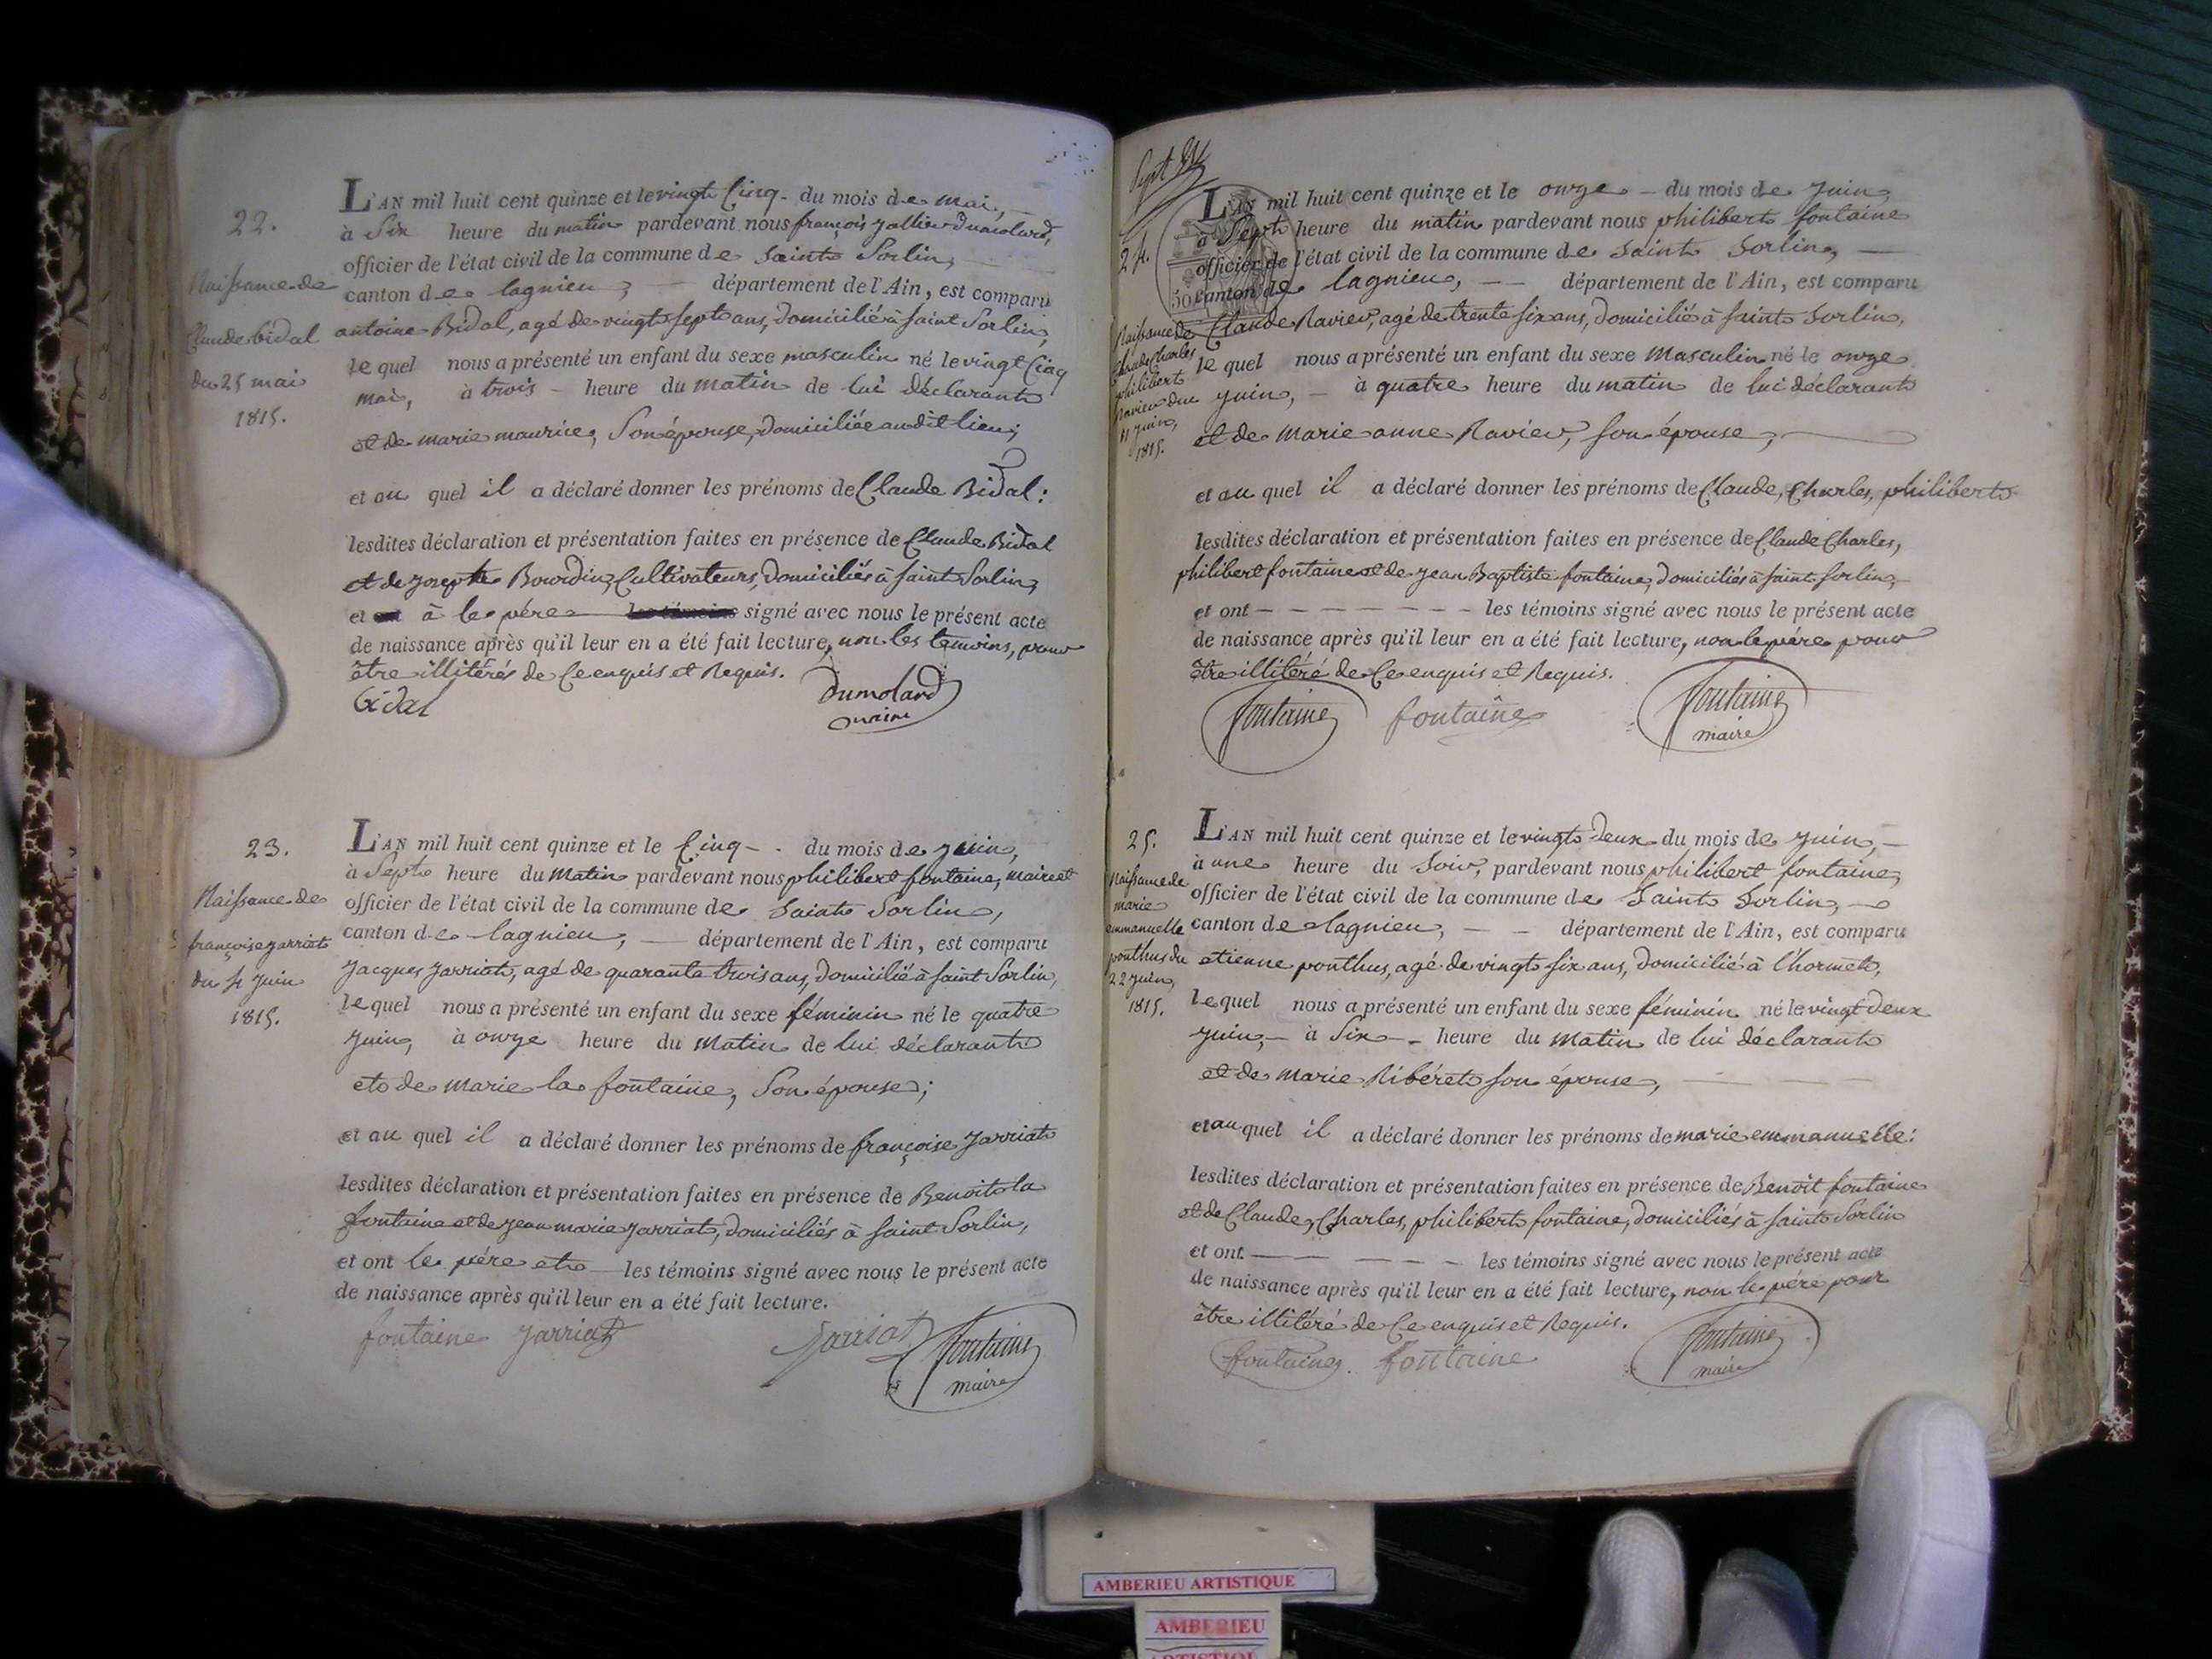 22.
Naissance de
Claude bidal
du 25 mai
1815.
L'AN mil huit cent quinze et le vingt Cinq - du mois de mai,
à Six heure du matin pardevant nous françois Dumolard,
officier de l'état civil de la commune de Saint Sorlin,
canton de lagnieu, département de l'Ain, est comparu
antoine Bidal, agé de vingt sept ans, domicilié à saint Sorlin,
le quel nous a présenté un enfant du sexe masculin né le vingt Cinq
mai, à trois - heure du matin de lui déclarant
et de marie maurice, Son épouse, domiciliée audit lieu;
et au quel il a déclaré donner les prénoms de Claude Bidal:
lesdites déclaration et présentation faites en présence de Claude Bidal
et de joseph Bourdin, Cultivateurs, domiciliés à saint Sorlin,
et à le père signé avec nous le présent acte
de naissance après qu'il leur en a été fait lecture, non les temoins, pour
être illitérés de Ce enquis et Requis.
Bidal
Dumolard
maire
23.
Naissance de
françoise jarriat
du 4 juin
1815.
L'AN mil huit cent quinze et le Cinq - du mois de juin,
à Sept heure du matin pardevant nous philibert fontaine, maire et
officier de l'état civil de la commune de Saint Sorlin,
canton de lagnieu, département de l'Ain, est comparu
jacques jarriat, agé de quarante trois ans, domicilié à saint Sorlin,
le quel nous a présenté un enfant du sexe féminin né le quatre
juin, à onze heure du matin de lui déclarant
et de marie la fontaine, Son épouse;
et au quel il a déclaré donner les prénoms de françoise jarriat
lesdites déclaration et présentation faites en présence de Benoit la
fontaine et de jean marie jarriat, domiciliés à saint Sorlin,
et ont le père et les témoins signé avec nous le présent acte
de naissance après qu'il leur en a été fait lecture.
fontaine jarriat
jarriat
fontaine
maire
24.
Naissance de
Claude Charles
philibert
ravier du
11 juin,
1815.
L'AN mil huit cent quinze et le onze - du mois de juin,
à Sept heure du matin pardevant nous philibert fontaine
officier de l'état civil de la commune de Saint Sorlin,
canton de lagnieu, département de l'Ain, est comparu
Claude Ravier, agé de trente six ans, domicilié à saint Sorlin,
le quel nous a présenté un enfant du sexe Masculin né le onze
juin, - à quatre heure du matin de lui déclarant
et de marie anne Ravier, son épouse,
et au quel il a déclaré donner les prénoms de Claude, Charles, philibert
lesdites déclaration et présentation faites en présence de Claude Charles,
philibert fontaine et de jean Baptiste fontaine, domiciliés à saint Sorlin,
et ont - - - - - - - les témoins signé avec nous le présent acte
de naissance après qu'il leur en a été fait lecture, non le père pour
être illitéré de Ce enquis et Requis.
fontaine fontaine fontaine
maire
25.
Naissance de
marie
emmanuelle
ponthus du
22 juin,
1815.
L'AN mil huit cent quinze et le vingt deux du mois de juin,
à une heure du Soir, pardevant nous philibert fontaine,
officier de l'état civil de la commune de Saint Sorlin,
canton de lagnieu, - - département de l'Ain, est comparu
etienne ponthus, agé de vingt six ans, domicilié à l'hormet,
le quel nous a présenté un enfant du sexe féminin né le vingt deux
juin, - à Six - heure du matin de lui déclarant
et de marie Ribéret son épouse,
et au quel il a déclaré donner les prénoms de marie emmanuelle:
lesdites déclaration et présentation faites en présence de Benoit fontaine
et de Claude, Charles, philibert fontaine, domiciliés à saint Sorlin
et ont - - - - - les témoins signé avec nous le présent acte
de naissance après qu'il leur en a été fait lecture, non le père pour
être illitéré de Ce enquis et Requis.
fontaine. fontaine fontaine
maire
AMBERIEU ARTISTIQUE
AMBERIEU
ARTISTIQUE